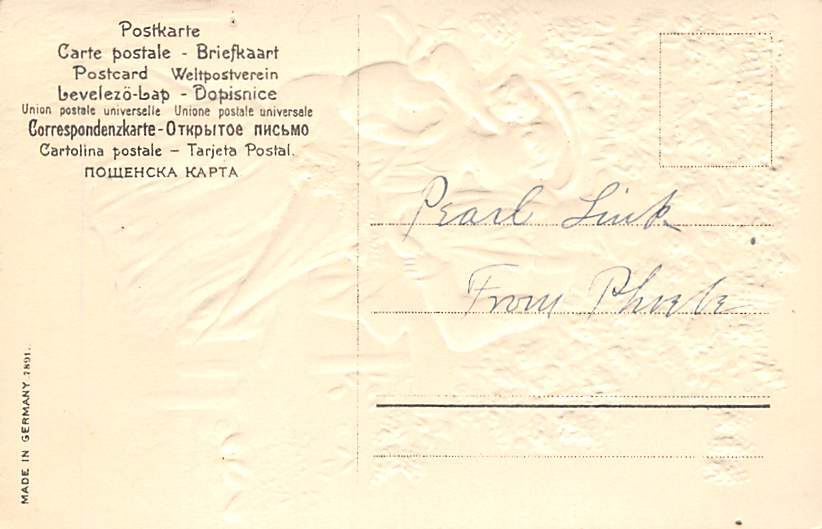 Postkarte
Carte postale - Briefkaart
Postcard Weltpostverein
Levelező-Lap - Dopisnice
Union postale universelle Unione postale universale
Correspondenzkarte-Открытое письмо
Cartolina postale – Tarjeta Postal.
ПОЩЕНСКА КАРТА
Pearl Link
From Phoebe
MADE IN GERMANY 7891.